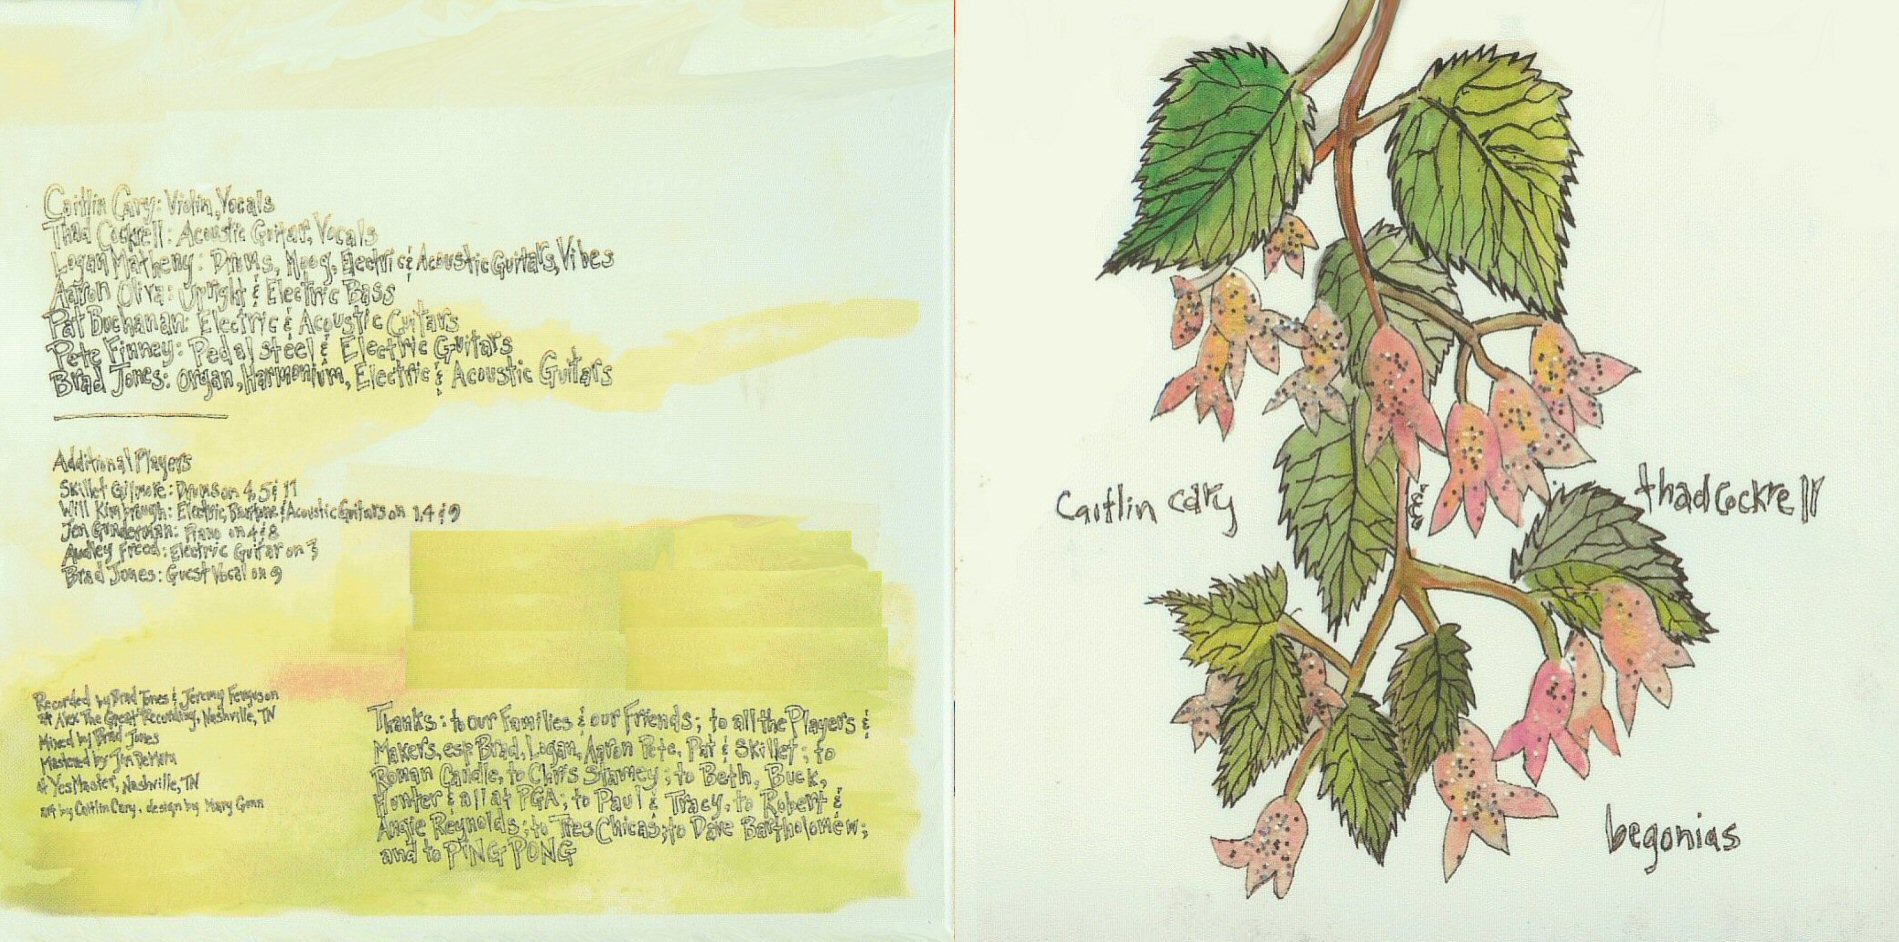 Caitlin Cary: Violin, Vocals
Thad Cockrell: Acoustic Guitar, Vocals
Logan Matheny: Drums, Moog, Electric & Acoustic Guitars, Vibes
Aaron Oliva: Upright & Electric Bass
Pat Buchanan: Electric & Acoustic Guitars
Pete Finney: Pedal steel & Electric Guitars
Brad Jones: Organ, Harmonium, Electric & Acoustic Guitars
Additional Players
Skillet Gilmore: Drums on 4, 5 & 11
Will Kimbrough: Electric, Baritone & Acoustic Guitars on 1, 4 & 9
Jen Gunderman: Piano on 4 & 8
Audley Freed: Electric Guitar on 3
Brad Jones: Guest Vocal on 9
Recorded by Brad Jones & Jeremy Ferguson
at Alex The Great Recording, Nashville, TN
Mixed by Brad Jones
Mastered by Jim DeMain
at Yes Master, Nashville, TN
art by Caitlin Cary, design by Mary Gunn
Thanks: to our Families & our Friends; to all the Players &
Makers, esp Brad, Logan, Aaron Pete, Pat & Skillet; to
Roman Candle, to Chris Stamey; to Beth, Buck,
Hunter & all at PGA; to Paul & Tracy, to Robert &
Angie Reynolds; to Tres Chicas; to Dave Bartholomew;
and to PiNG PONG
Caitlin cary
thad Cockrell
begonias